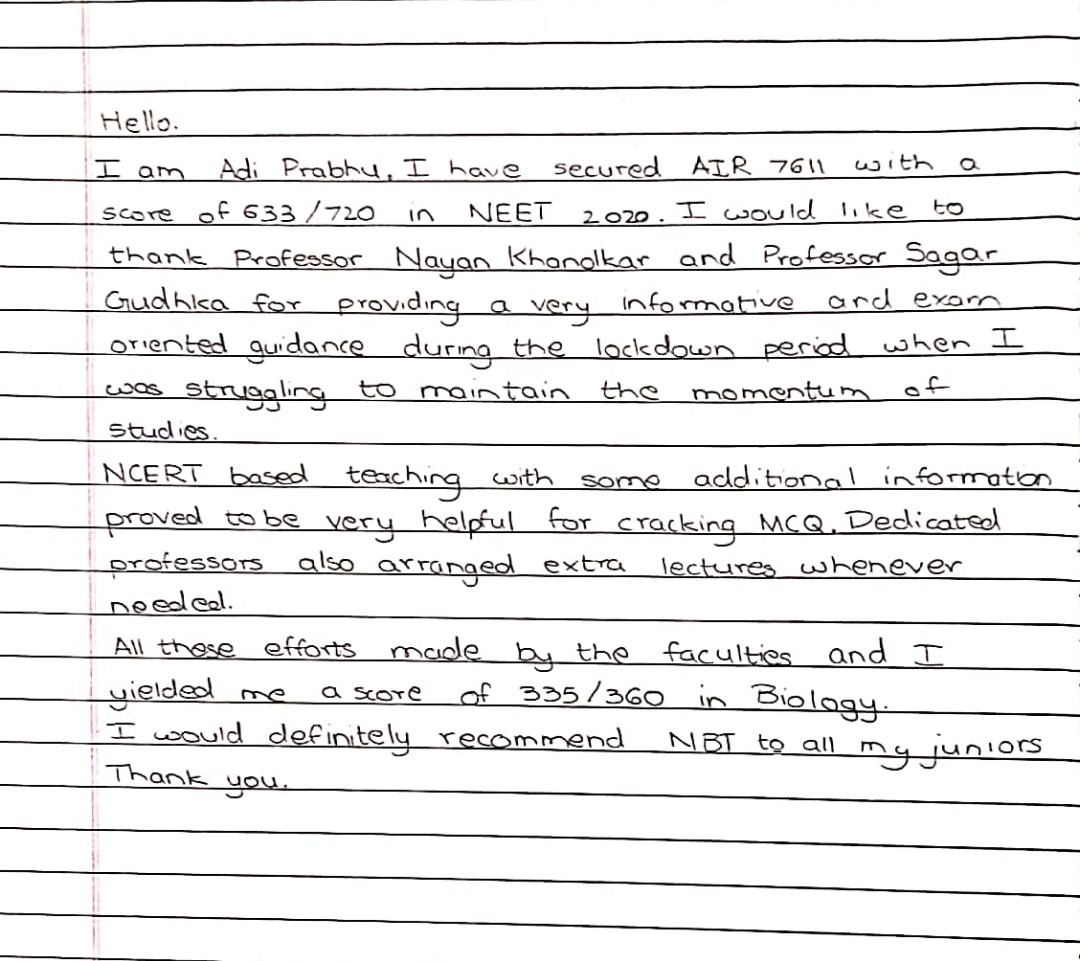 Hello.
I am Adi Prabhu, I have secured AIR 7611 with a
score of 633/720 in NEET 2020. I would like to
thank Professor Nayan Khanolkar and Professor Sagar
Gudhka for providing a very informative and exam
oriented guidance during the lockdown period when I
was struggling to maintain the momentum of
studies.
NCERT based teaching with some additional information
proved to be very helpful for cracking MCQ. Dedicated
professors also arranged extra lectures whenever
needed.
All these efforts made by the faculties and I
yielded me a score of 335/360 in Biology.
I would definitely recommend NBT to all my juniors
Thank you.